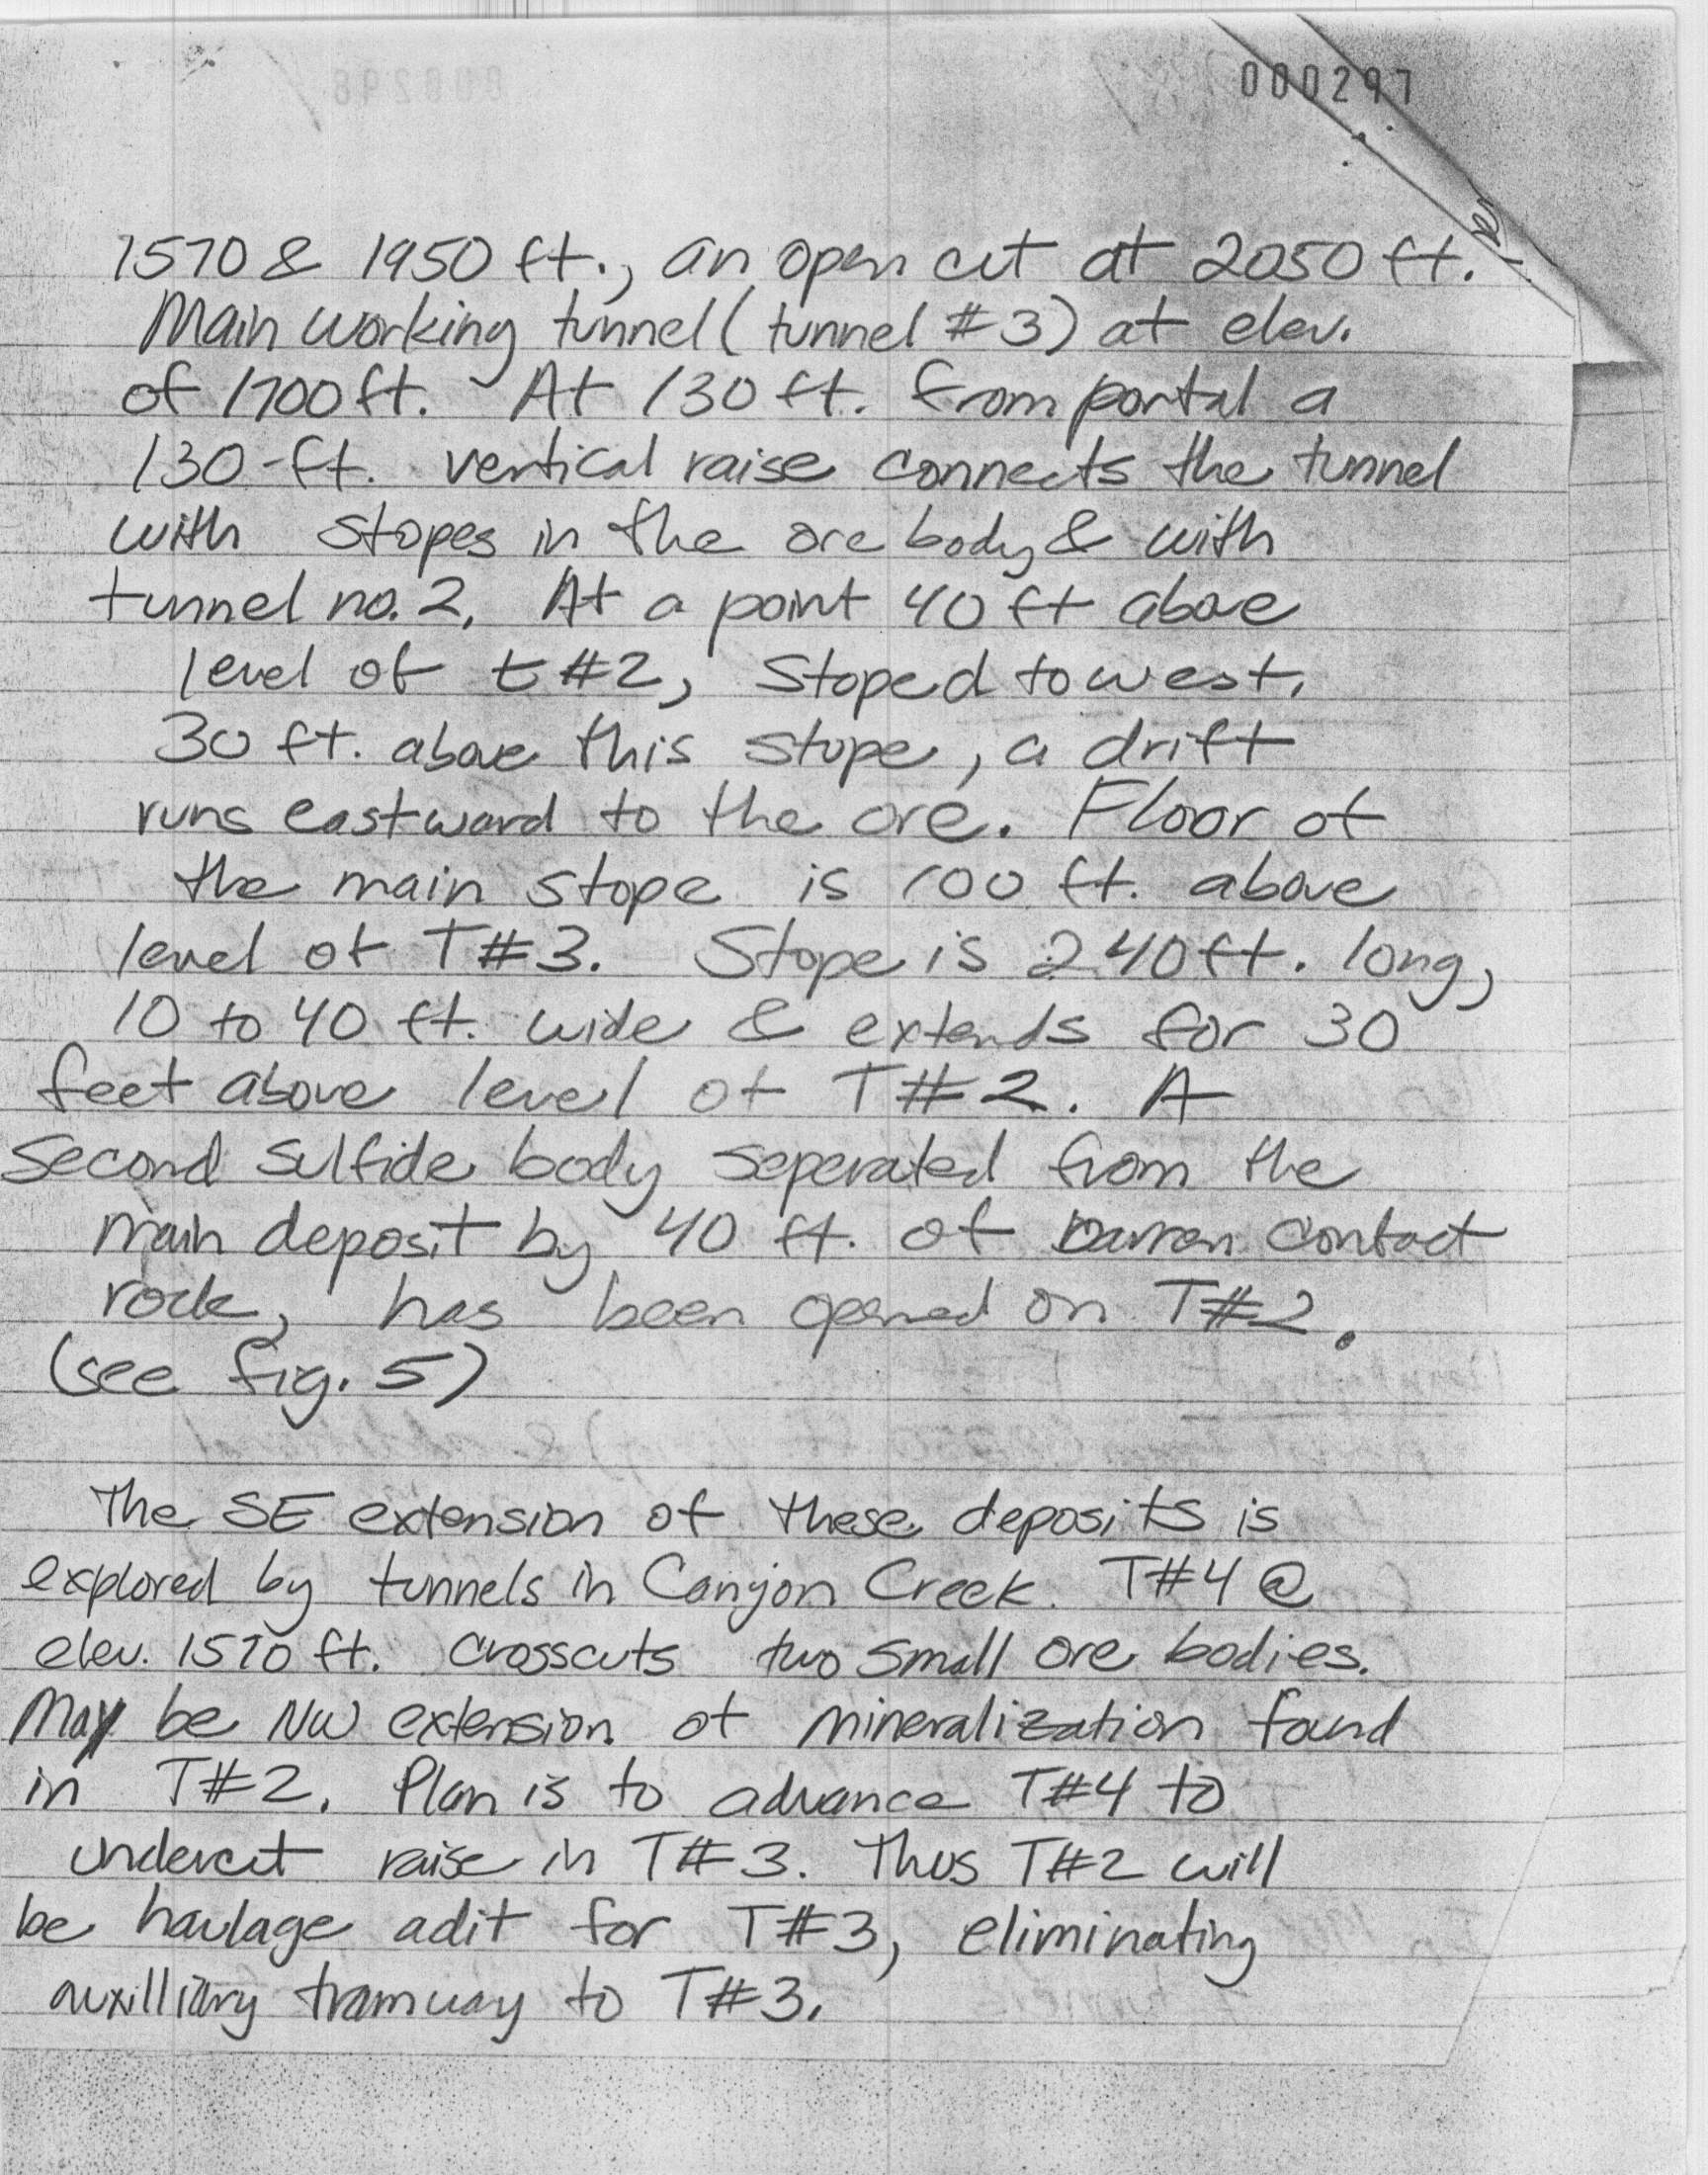 000297
1570 & 1950 ft., an open cut at 2050 ft.
Main working tunnel (tunnel #3) at elev.
of 1700 ft. At 130 ft. from portal a
130-ft. vertical raise connects the tunnel
with stopes in the ore body & with
tunnel no. 2. At a point 40 ft above
level of t #2, stoped to west.
30 ft. above this stope, a drift
runs eastward to the ore. Floor of
the main stope is 100 ft. above
level of T#3. Stope is 240 ft. long,
10 to 40 ft. wide & extends for 30
feet above level of T#2. A
second sulfide body seperated from the
main deposit by 40 ft. of barren contact
rock, has been opened on T#2.
(see fig. 5)
The SE extension of these deposits is
explored by tunnels in Canyon Creek. T#4 @
elev. 1570 ft. crosscuts two small ore bodies.
May be NW extension of mineralization found
in T#2. Plan is to advance T#4 to
undercut raise in T#3. Thus T#2 will
be haulage adit for T#3, eliminating
auxilliary tramway to T#3.